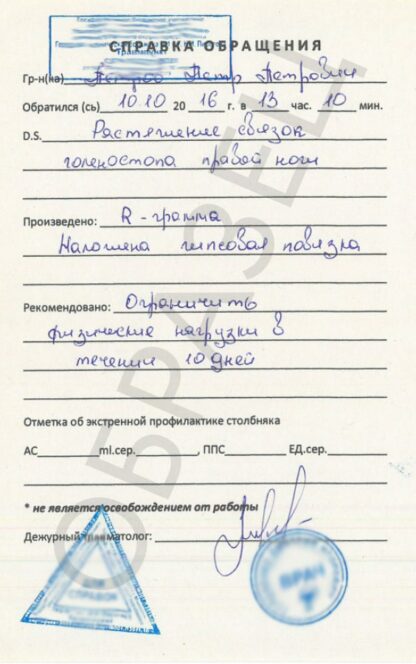 СПРАВКА ОБРАЩЕНИЯ
Гр-н(ка) Петров Петр Петрович
Обратился (сь) 10.10 20 16 г. в 13 час. 10 мин.
D.S. Растяжение связок
голеностопа правой ноги
Произведено: R-грамма
Наложена гипсовая повязка
Рекомендовано: Ограничить
физические нагрузки в
течении 10 дней
Отметка об экстренной профилактике столбняка
АС ml.сер. , ППС ЕД.сер.
* не является освобождением от работы
Дежурный травматолог:
ДЛЯ СПРАВОК
ВРАЧ
ОБРАЗЕЦ